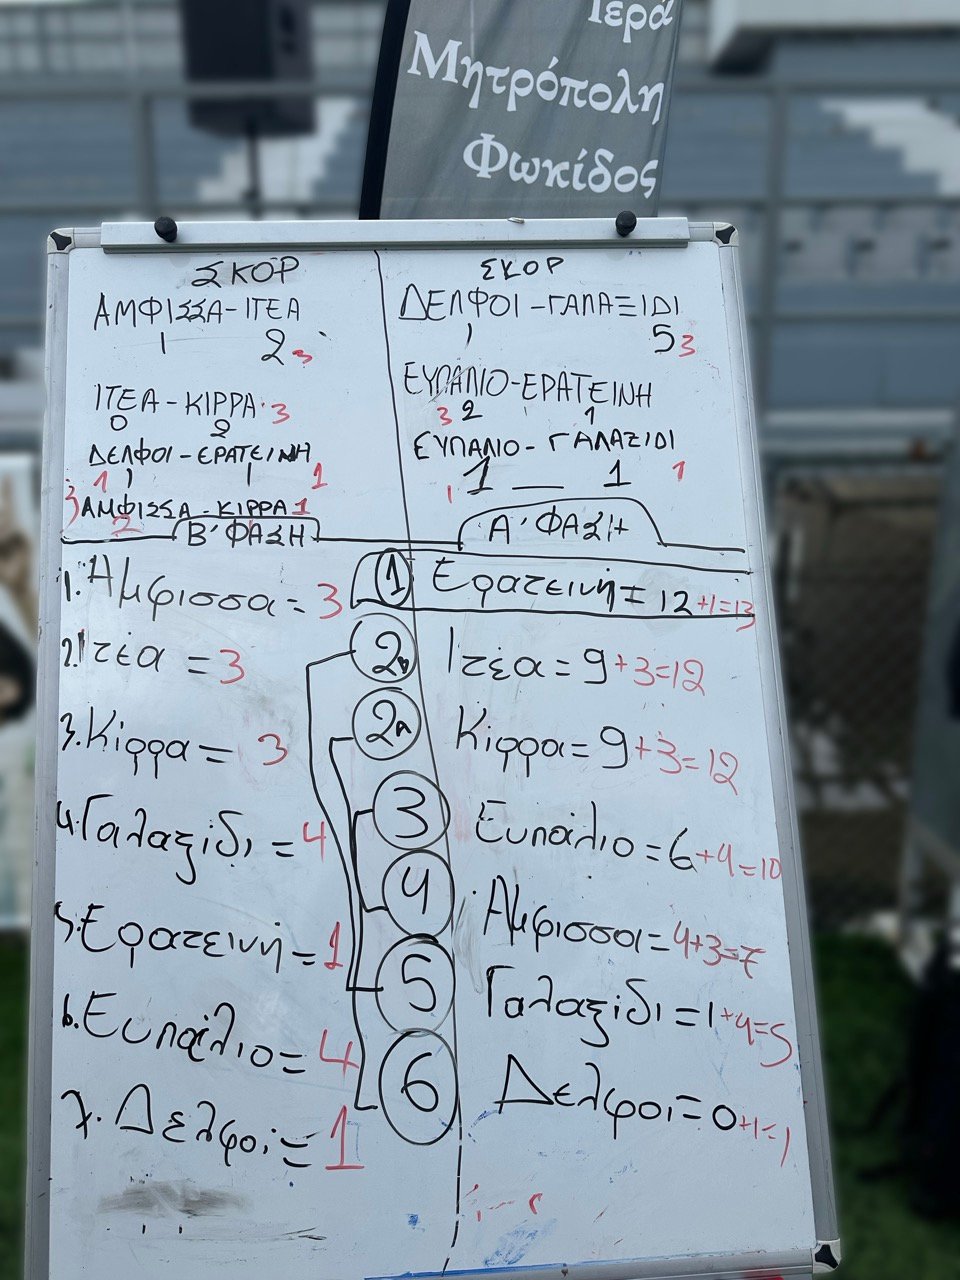 Ιερά
Μητρόπολη
Φωκίδος
ΣΚΟΡ
ΑΜΦΙΣΣΑ-ΙΤΕΑ
1 2 3
ΙΤΕΑ-ΚΙΡΡΑ 3
0 2
ΔΕΛΦΟΙ-ΕΡΑΤΕΙΝΗ
1 1 1 1
3 ΑΜΦΙΣΣΑ-ΚΙΡΡΑ 1
2
ΣΚΟΡ
ΔΕΛΦΟΙ-ΓΑΛΑΞΙΔΙ
1 5 3
ΕΥΠΑΛΙΟ-ΕΡΑΤΕΙΝΗ
3 2 1
ΕΥΠΑΛΙΟ-ΓΑΛΑΞΙΔΙ
1 1 — 1 1
Β' ΦΑΣΗ
1. Άμφισσα = 3
2. Ιτέα = 3
3. Κίρρα = 3
4. Γαλαξίδι = 4
5. Ερατεινή = 1
6. Ευπάλιο = 4
7. Δελφοί = 1
Α' ΦΑΣΗ
1 Ερατεινή = 12+1=13
2Β Ιτέα = 9+3=12
2Α Κίρρα = 9+3=12
3 Ευπάλιο = 6+4=10
4 Άμφισσα = 4+3=7
5 Γαλαξίδι = 1+4=5
6 Δελφοι = 0+1=1